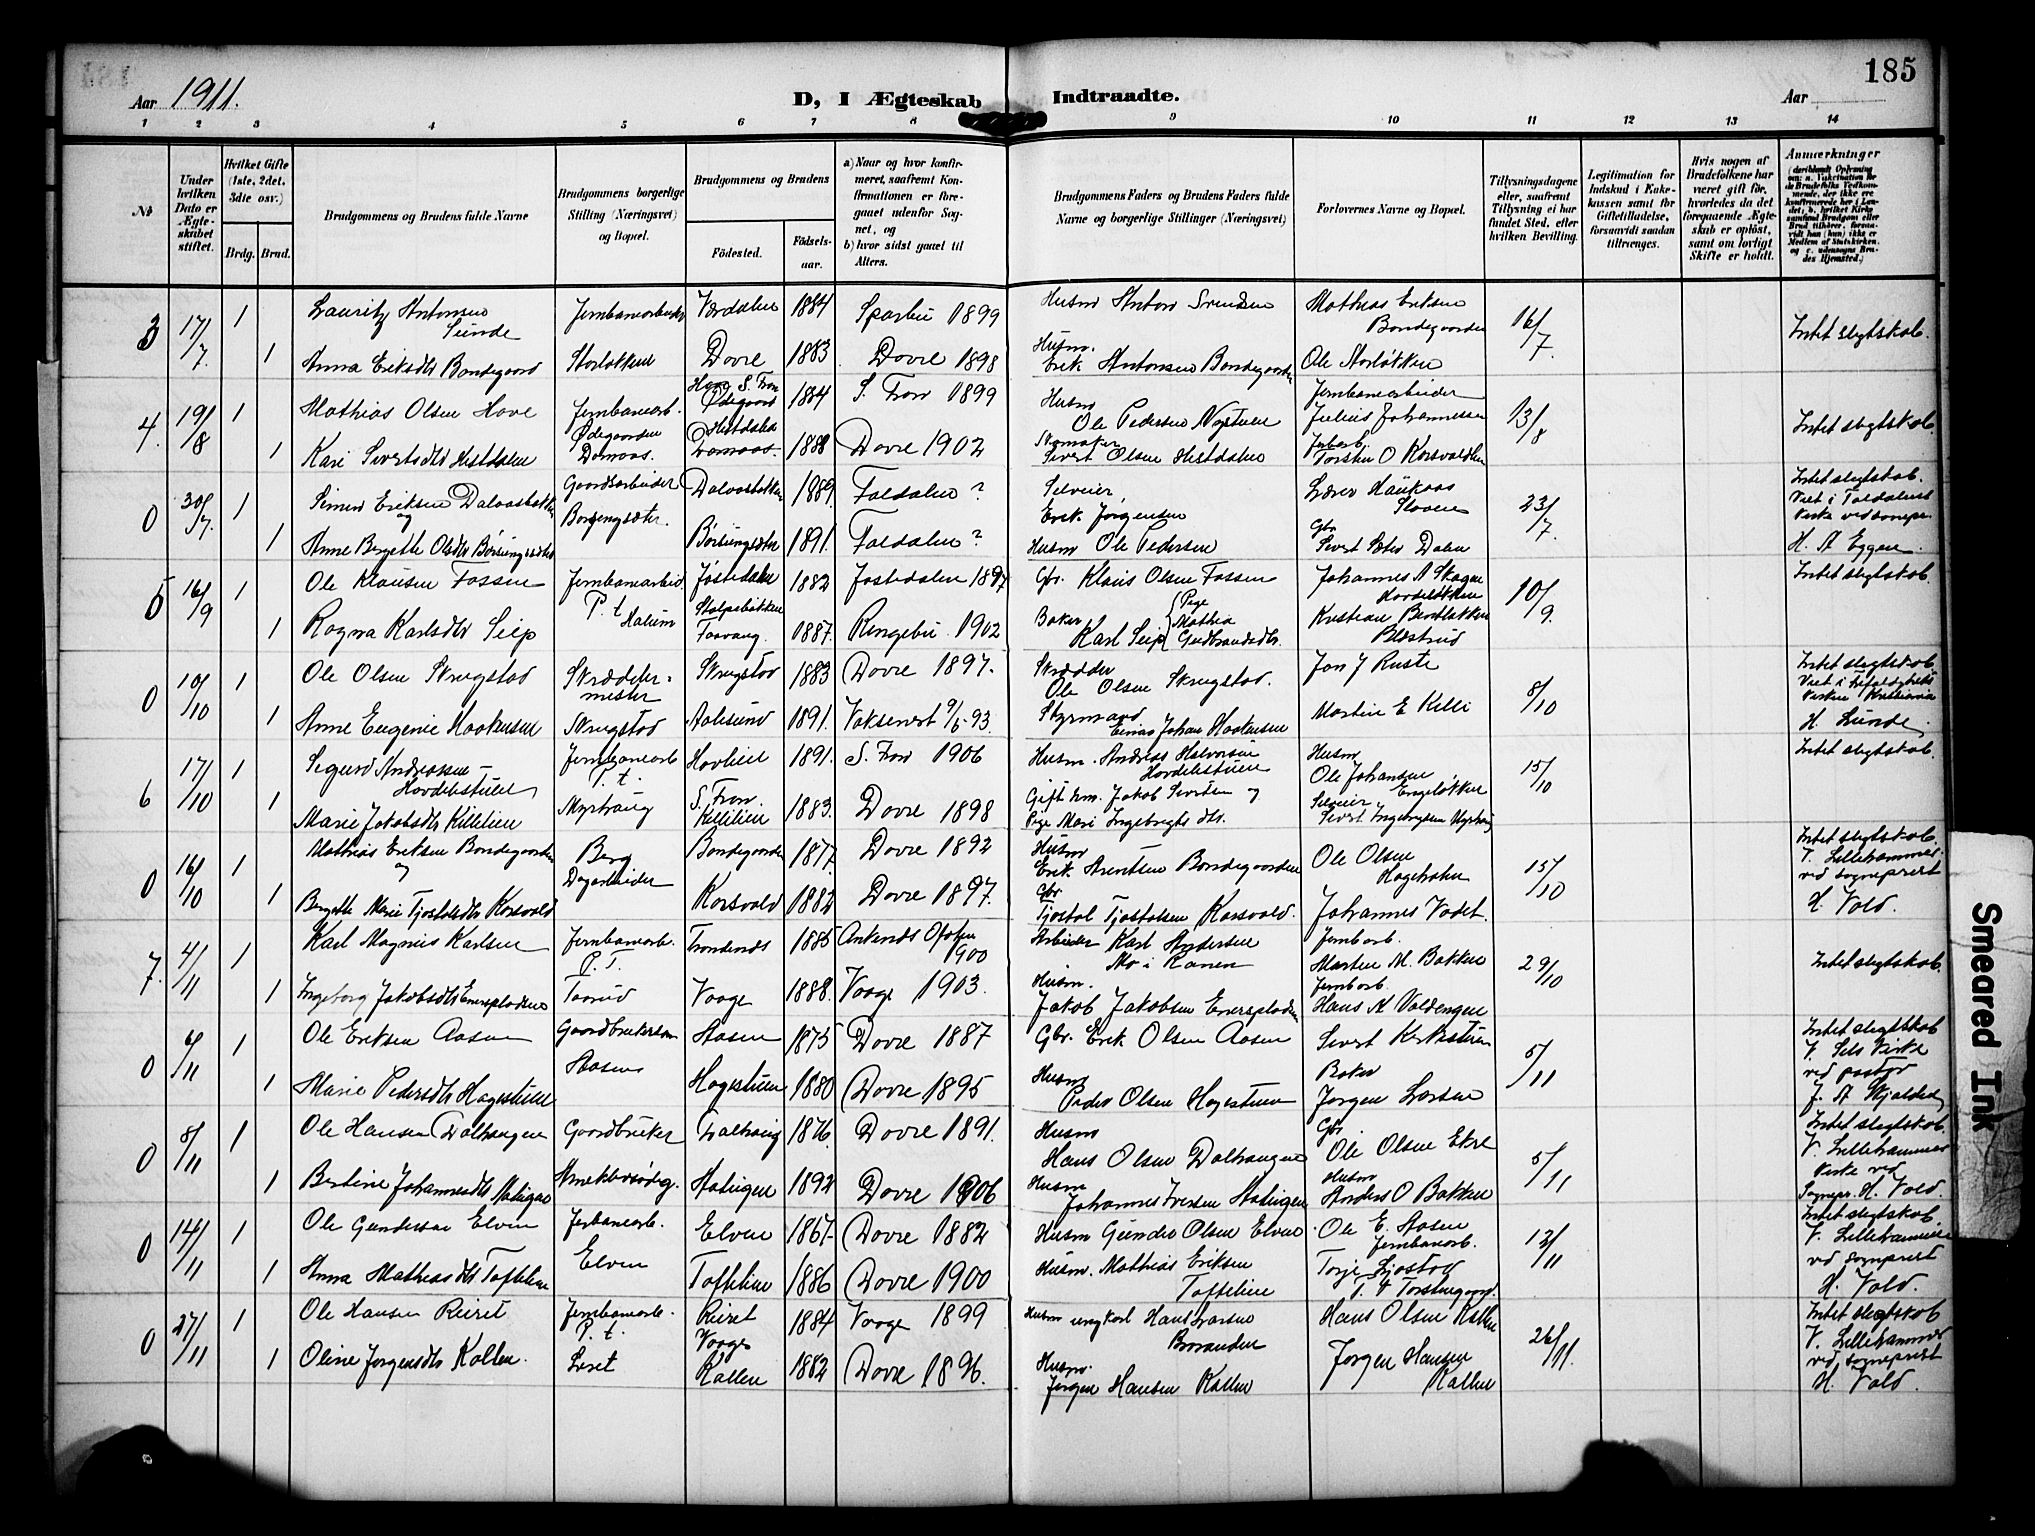 185
Aar 1911.
D, I Ægteskab Indtraadte.
Aar
1 2 3 4 5 6 7 8 9 10 11 12 13 14
Nr.
Under hvilken Dato er Ægteskabet stiftet.
Hvilket Gifte (1ste, 2det, 3die osv.)
Brdg. Brud.
Brudgommens og Brudens fulde Navne
Brudgommens borgerlige Stilling (Næringsvei) og Bopæl.
Brudgommens og Brudens
Fødested.
Fødselsaar.
a) Naar og hvor konfirmeret, saafremt Konfirmationen er foregaaet udenfor Sognet, og
b) hvor sidst gaaet til Alters.
Brudgommens Faders og Brudens Faders fulde Navne og borgerlige Stillinger (Næringsvei)
Forlovernes Navne og Bopæl.
Tillysningsdagene eller, saafremt Tillysning ei har fundet Sted, efter hvilken Bevilling.
Legitimation for Indskud i Enkekassen samt for Giftetilladelse, forsaavidt saadan tiltrænges.
Hvis nogen af Brudefolkene har været gift før, hvorledes da det foregaaende Ægteskab er opløst, samt om lovligt Skifte er holdt.
Anmærkninger
3 17/7. 1 Lauritz Antonsen Sunde Jernbanearbeider Værdalen 1884 Sparbu 1899 Husm Anton Svendsen Mathias Eriksen Bondegaarden 16/7. Intet slegtskab.
1 Anna Eriksdtr Bondegaard Storløkken Dovre 1883 Dovre 1898 Husm. Erik Antonsen Bondegaarden Ole Storløkken
4. 19/8 1 Mathias Olsen Hove Jernbanearb. Hove S. Fron Ødegaard 1884 S. Fron 1899 Husm Ole Pedersen Nystuen Jernbanearbeider Julius Johannessen 13/8 Intet slegtskab.
1 Kari Sivertsdtr Hestdalen Ødegaarden Domaas. Hestdalen Domaas. 1888 Dovre 1902 Skomaker Sivert Olsen Hestdalen Jnbarb. Torstein O Korsvolden
0 30/7. 1 Simen Eriksen Dalvasbakken og Gaardsarbeider Dalvasbakken 1889 Foldalen? Selveier, Erik Jørgensen Lærer Haukaas Sloven 23/7. Intet slegtskab.
Viet i Foldalens Kirke ved sognepr. H. A Eggen.
1 Anne Bergette Olsdtr Børsungsæter Børsengsæter. Børsungsæter 1891. Foldalen? Husm Ole Pedersen Gbr Sivert Sæter Dalen
5 16/9 1 Ole Klausen Fossen Jernbanearbeid. Jøstedalen 1882 Jostedalen 1897 Gbr. Klaus Olsen Fossen Johannes A Skogen Hovdeløkken 10/9. Intet slegtskab.
1 Ragna Karlsdtr Seip P. t Halum Stolpebakken Faavang. 1887. Ringebu. 1902 Baker Karl Seip { Pige Mathia Gudbrandsdtr. Kristian Brolløkken Blæstrud
0 10/10 1 Ole Olsen Skrugstad Skrædermester Skrugstad 1883 Dovre 1897. Skrædder Ole Olsen Skrugstad. Jon J Ruste 8/10 Intet slegtskab
Viet i Trefoldigheds Kirken Kristiania H. Lunde.
1 Anne Eugenie Haakensen Skrugstad Aalesund 1891. Vaksenert 9/5-93. Styrmand Einar Johan Haakensen Martin E Killi
6 17/10 1 Sigurd Andreassen Hovdelistuen Jernbanearb P. t Hovlien 1891. S. Fron 1906 Husm. Andreas Halvorsen Hovdelistuen Husm Ole Johansen Engeløkken 15/10 Intet slegtskab.
1 Marie Jakobsdtr Killilien Myrhaug S. Fron. Killilien 1883. Dovre 1898 Gift hm. Jakob Sivertsen og Pige Mari Ingebrigtsdtr. Selveier Sivert Ingebrigtsen Myrhaug
0 16/10 1 Mathias Eriksen Bondegaarden og Berg Dagarbeider Bondegaarden 1877. Dovre 1892 Husm Erik Arentsen Bondegaarden Ole Olsen Hageholen 15/10 Intet slegtskab.
V. Lillehammer. ved sogneprest H. Vold.
1 Bergette Marie Tjostolsdtr Korsvold Korsvold 1882 Dovre 1897. Gbr Tjostol Tjostolsen Korsvold. Johannes Vadet.
7. 4/11 1 Karl Magnus Karlsen Jernbanearb. P. T. Trondenes 1885 Ankenes Ofoten 1900 Arbeider Karl Andersen Mo i Ranen Jernbarb. Martin M. Bakken 29/10 Intet slegtskab.
1 Ingeborg Jakobsdtr Enerspladsen Toorud Vaage 1888. Vaage 1903. Husm. Jakob Jakobsen Enersplads Jernbarb. Hans A Voldengen
0 6/11 1 Ole Eriksen Aasen Gaardbrukersøn Aasen 1875 Dovre 1887 Gbr. Erik Olsen Aasen Sivert Kirkestuen 5/11 Intet slegtskab
V. Sels Kirke ved pastor J. A Skjalden
1 Marie Pedersdtr Hagestuen Aasen Hagestuen 1880 Dovre 1895 Husm Peder Olsen Hagestuen Baker Jørgen Larsen
0 8/11 1 Ole Hansen Dalhaugen Gaardbruker Dalhaug 1876. Dovre 1891. Husm Hans Olsen Dalhaugen Gbr. Ole Olsen Ekre 5/11 Intet slegtskab.
V. Lillehammer Kirke ved Sognepr. H. Vold.
1 Bertine Johannesdtr Hatingen Hatingen 1892 Dovre 1906 Husm Johannes Iversen Hatingen Husm Anders O Bakken
0 14/11 1 Ole Gundersen Elven Jernbanearb. Elven 1867- Dovre 1882 Husm Gunder Olsen Elven Ole E. Aasen Jernbanearb. 12/11 Intet slegtskab.
V. Lillehammer ved sogneprest H. Vold.
1 Anna Mathiasdtr Toftelien Elven Toftelien 1886 Dovre 1900 Husm. Mathias Eriksen Toftelien Torje Sjostad T. 4 Torstengaard.
0 27/11 1 Ole Hansen Reiret Jernbanearb. P. t. Reiret Vaage 1884 Vaage 1899 Husm ungkarl Hans Larsen Boranden Hans Olsen Kollen 26/11. Intet slegtskab
V. Lillehammer ved sogneprest H. Vold.
1 Oline Jørgensdtr Kollen. Liset Kollen 1882 Dovre 1896. Husm. Jørgen Hansen Kollen Jørgen Hansen Kollen
Smeared Ink